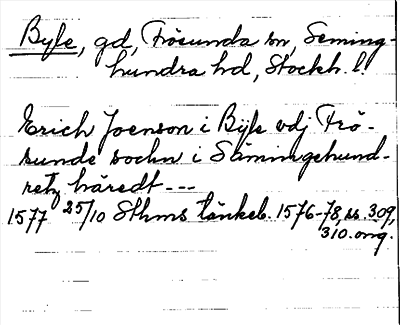 Byle, gd, Frösunda sn, Seming-
hundra hd, Stockh. l.
Erich Joenson i Byle vdj Frö-
sunde sockn i Sämingehund-
retz häredt ---
1577 25/10 Sthms tänkeb. 1576-78, ss. 309,
310. orig.